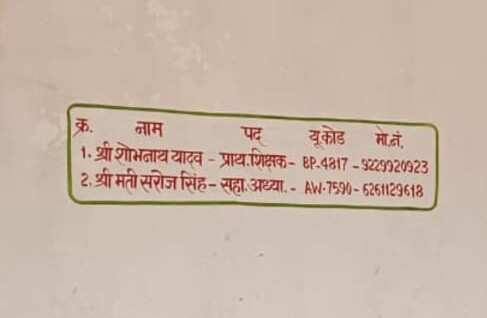 क्र. नाम पद यूकोड मो.नं.
1. श्री शोभनाथ यादव - प्राथ. शिक्षक - BP.4817 - 9229920923
2. श्रीमती सरोज सिंह - सहा. अध्या. - AW.7590 - 6261129618